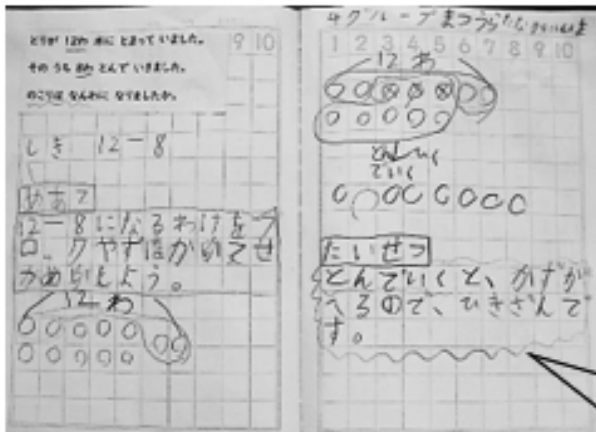 とりが 12わ 木に とまって いました。
その うち 8わ とんで いきました。
のこりは なんわに なりましたか。
9 10
しき 12-8
めあて
12-8になるわけを
ロックやずほかので
せ
よう。
12わ
4グループ
1 2 3 4 5 6 7 8 9 10
12わ
とんで
いく
たいせつ
とんでいくと、かずが
へるので、ひきざんで
す。